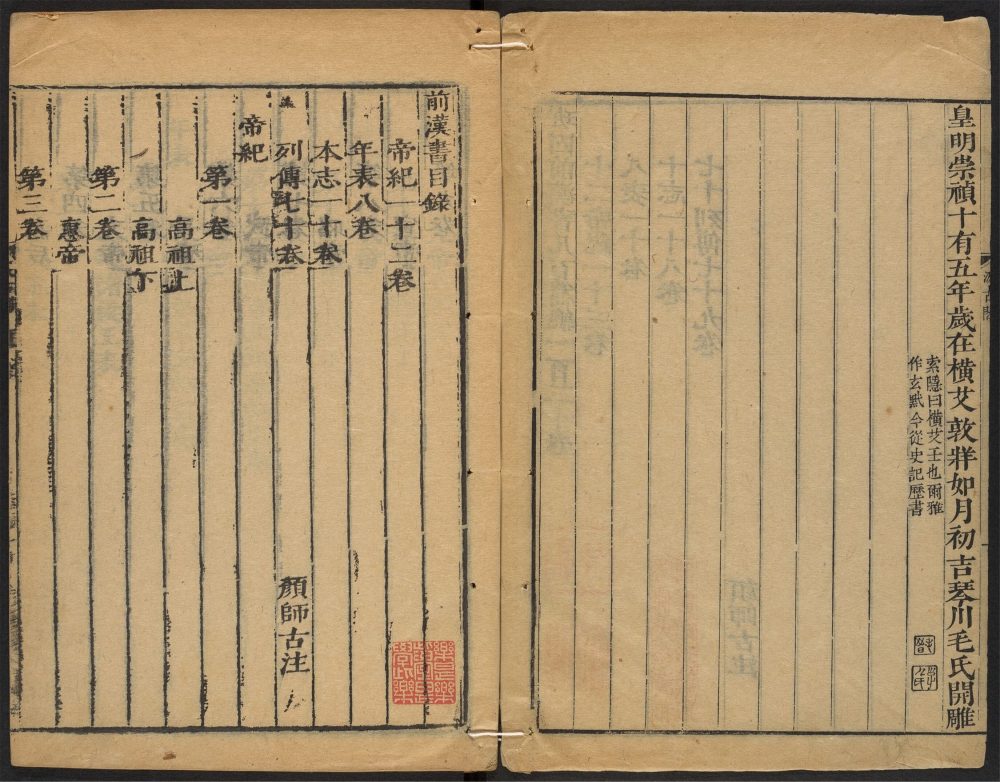 皇明崇禎十有五年歲在橫艾敦牂如月初吉琴川毛氏開雕
索隱曰橫艾壬也爾雅
作玄黓今從史記歷書
前漢書目錄
帝紀一十二卷
年表八卷
本志一十卷
列傳七十卷
顏師古注
帝紀
第一卷
高祖上
高祖下
第二卷
惠帝
第三卷